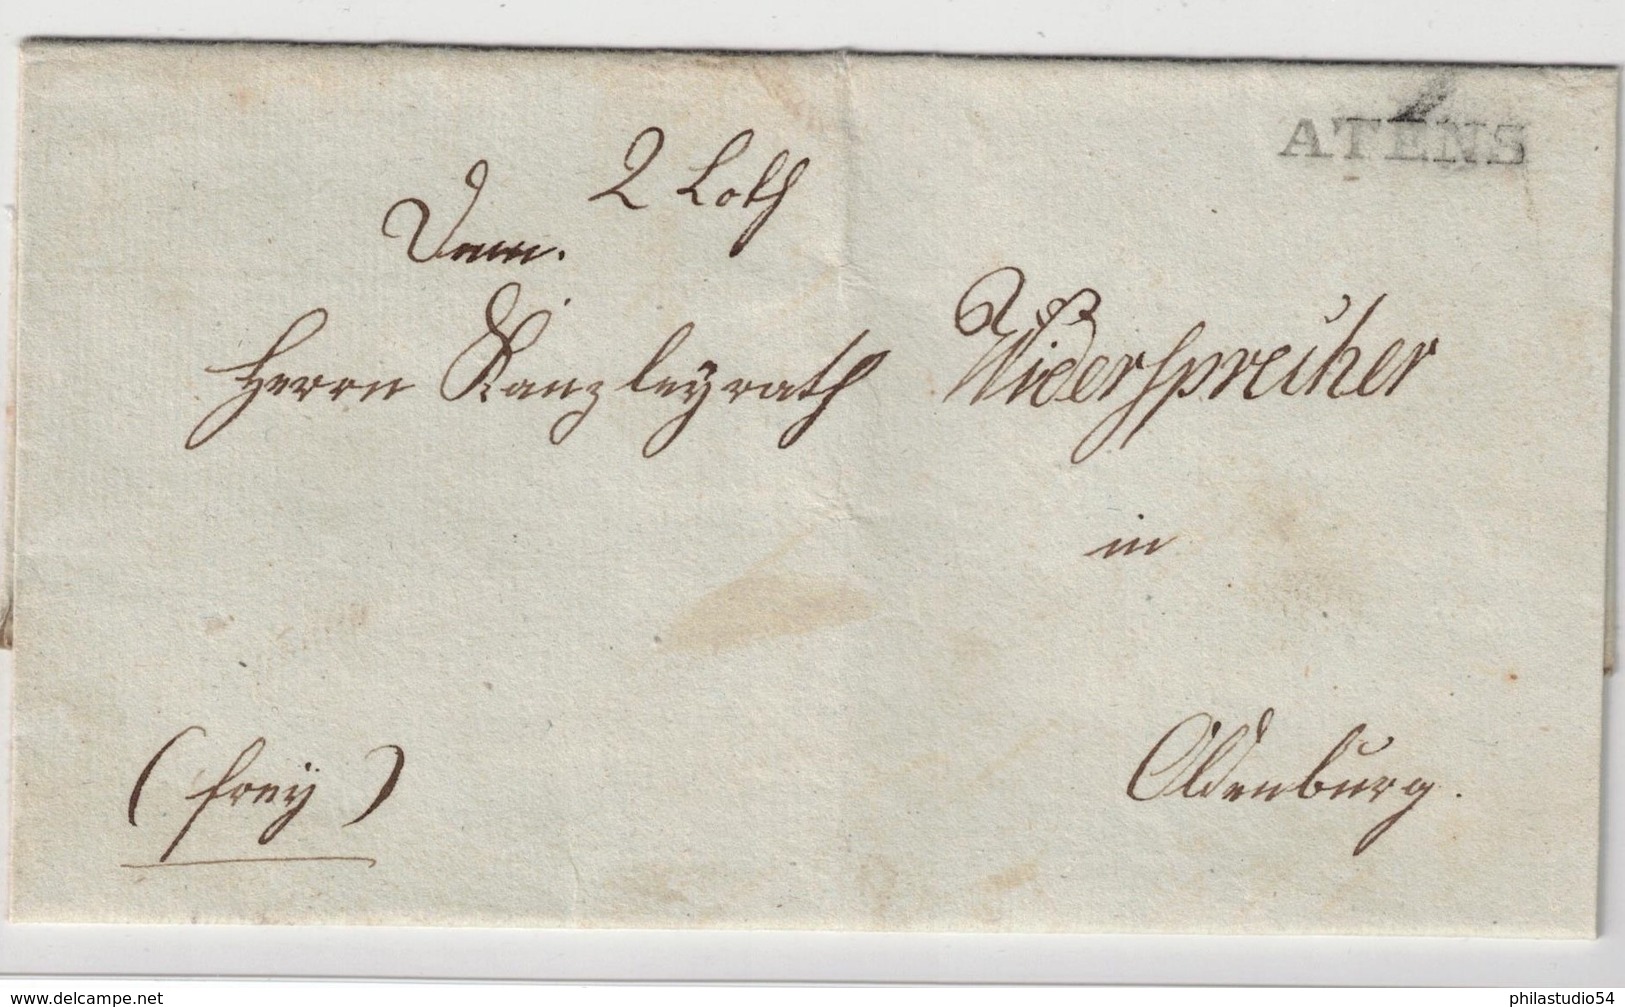 ATENS
2 Loth
Dem.
Herrn Kanzleyrath Widersprecher
in
Oldenburg.
(frey)
www.delcampe.net
philastudio54